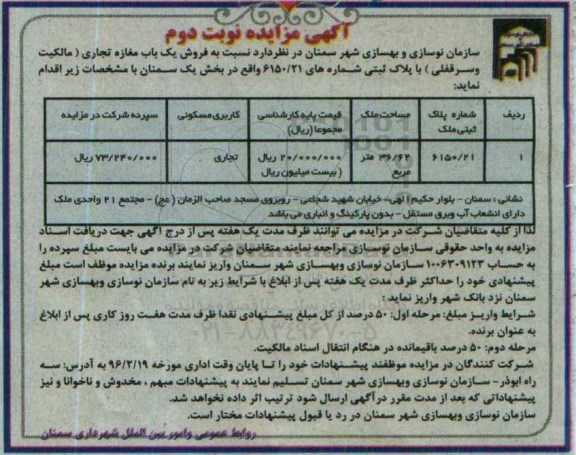 آگهی مزایده نوبت دوم
سازمان نوسازی و بهسازی شهر سمنان در نظردارد نسبت به فروش یک باب مغازه تجاری ( مالکیت
وسرقفلی ) با پلاک ثبتی شماره های ۶۱۵۰/۲۱ واقع در بخش یک سمنان با مشخصات زیر اقدام
نماید:
ردیف شماره پلاک ثبتی ملک مساحت ملک قیمت پایه کارشناسی مجموعا (ریال) کاربری مسکونی سپرده شرکت در مزایده
۱ ۶۱۵۰/۲۱ ۳۶/۶۲ متر مربع ۲۰/۰۰۰/۰۰۰ ریال ( بیست میلیون ریال تجاری ۷۳/۲۴۰/۰۰۰ ریال
نشانی : سمنان - بلوار حکیم الهی- خیابان شهید شجاعی - روبروی مسجد صاحب الزمان (عج) - مجتمع ۲۱ واحدی ملک
دارای انشعاب آب وبرق مستقل - بدون پارکینگ و انباری می باشد
لذا از کلیه متقاضیان شرکت در مزایده می توانند ظرف مدت یک هفته پس از درج آگهی جهت دریافت اسناد
مزایده به واحد حقوقی سازمان نوسازی مراجعه نمایند متقاضیان شرکت در مزایده می بایست مبلغ سپرده را
به حساب ۱۰۰۶۳۰۹۱۲۳ سازمان نوسازی وبهسازی شهر سمنان واریز نمایند برنده مزایده موظف است مبلغ
پیشنهادی خود را حداکثر ظرف مدت یک هفته پس از ابلاغ با شرایط زیر به نام سازمان نوسازی وبهسازی شهر
سمنان نزد بانک شهر واریز نماید :
شرایط واریز مبلغ: مرحله اول: ۵۰ درصد از کل مبلغ پیشنهادی نقدا ظرف مدت هفت روز کاری پس از ابلاغ
به عنوان برنده.
مرحله دوم: ۵۰ درصد باقیمانده در هنگام انتقال اسناد مالکیت.
شرکت کنندگان در مزایده موظفند پیشنهادات خود را تا پایان وقت اداری مورخه ۹۶/۲/۱۹ به آدرس: سه
راه ابوذر - سازمان نوسازی وبهسازی شهر سمنان تسلیم نمایند به پیشنهادات مبهم ، مخدوش و ناخوانا و نیز
پیشنهاداتی که بعد از مدت مقرر درآگهی ارسال شود ترتیب اثر داده نخواهد شد.
سازمان نوسازی وبهسازی شهر سمنان در رد یا قبول پیشنهادات مختار است.
روابط عمومی وامور بین الملل شهرداری سمنان